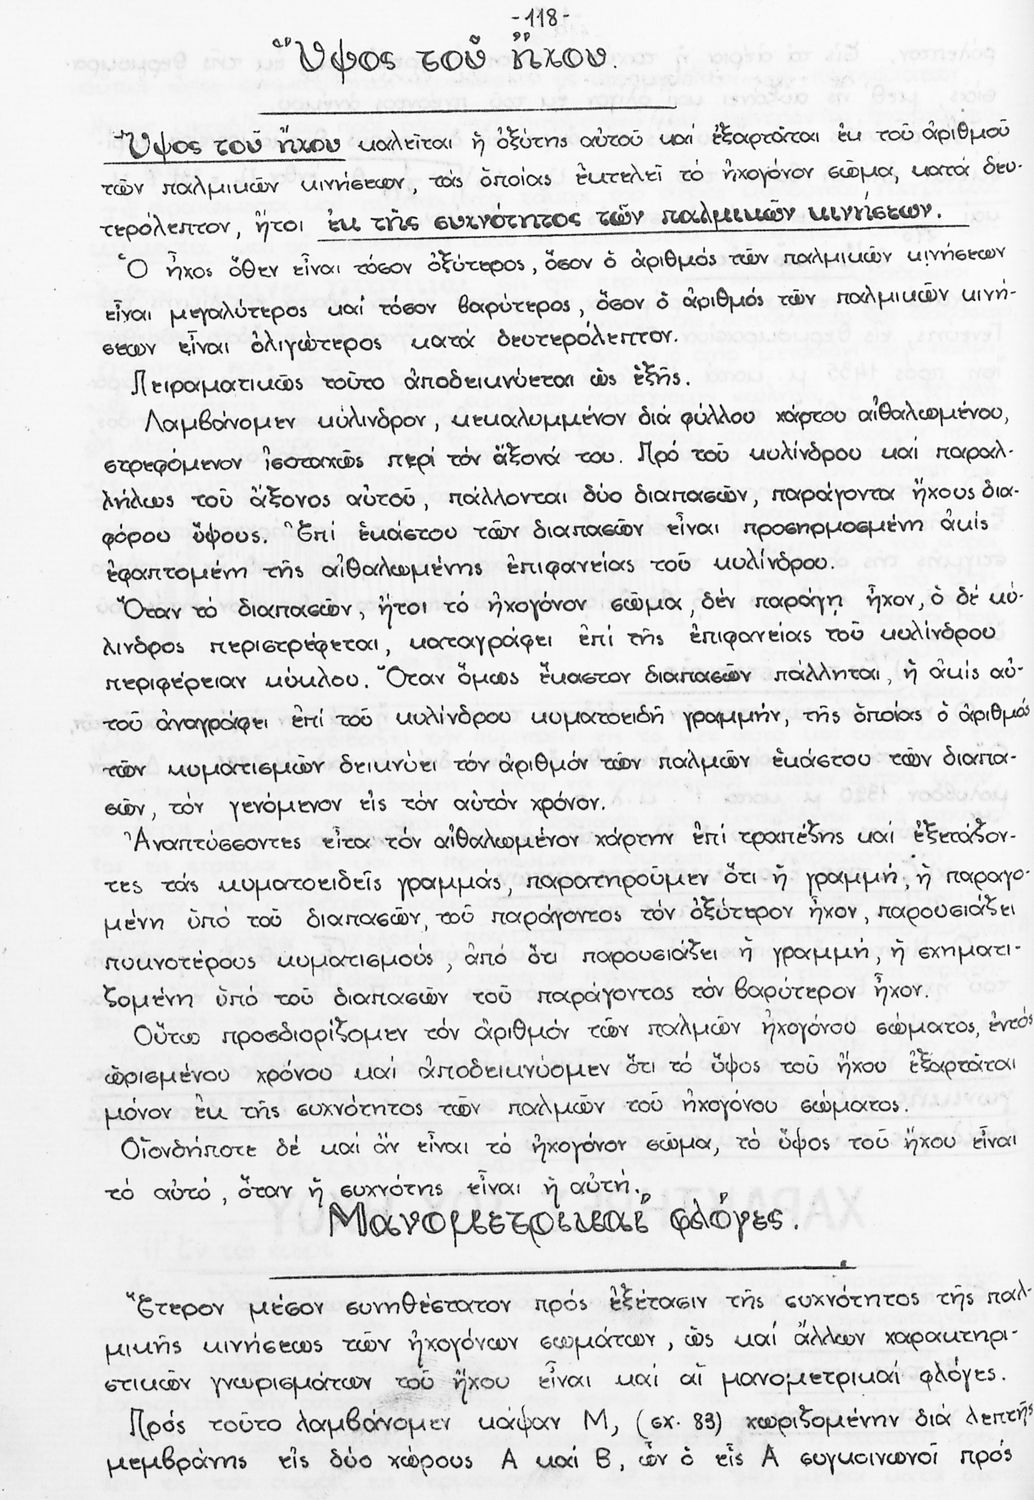 -118-
Ὕψος τοῦ ἤχου.
Ὕψος τοῦ ἤχου καλεῖται ἡ ὀξύτης αὐτοῦ καί ἐξαρτᾶται ἐκ τοῦ ἀριθμοῦ
τῶν παλμικῶν κινήσεων, τάς ὁποίας ἐκτελεῖ τό ἠχογόνον σῶμα, κατά δευ-
τερόλεπτον, ἤτοι ἐκ τῆς συχνότητος τῶν παλμικῶν κινήσεων.
Ὁ ἦχος ὅθεν εἶναι τόσον ὀξύτερος, ὅσον ὁ ἀριθμός τῶν παλμικῶν κινήσεων
εἶναι μεγαλύτερος καί τόσον βαρύτερος, ὅσον ὁ ἀριθμός τῶν παλμικῶν κινή-
σεων εἶναι ὀλιγώτερος κατά δευτερόλεπτον.
Πειραματικῶς τοῦτο ἀποδεικνύεται ὡς ἑξῆς.
Λαμβάνομεν κύλινδρον, κεκαλυμμένον διά φύλλου χάρτου αἰθαλωμένου,
στρεφόμενον ἰσοταχῶς περί τόν ἄξονά του. Πρό τοῦ κυλίνδρου καί παραλ-
λήλως τοῦ ἄξονος αὐτοῦ, πάλλονται δύο διαπασῶν, παράγοντα ἤχους δια-
φόρου ὕψους. Ἐπί ἑκάστου τῶν διαπασῶν εἶναι προσηρμοσμένη ἀκίς
ἐφαπτομένη τῆς αἰθαλωμένης ἐπιφανείας τοῦ κυλίνδρου.
Ὅταν τό διαπασῶν, ἤτοι τό ἠχογόνον σῶμα, δέν παράγῃ ἦχον, ὁ δέ κύ-
λινδρος περιστρέφεται, καταγράφει ἐπί τῆς ἐπιφανείας τοῦ κυλίνδρου
περιφέρειαν κύκλου. Ὅταν ὅμως ἕκαστον διαπασῶν πάλληται, ἡ ἀκίς αὐ-
τοῦ ἀναγράφει ἐπί τοῦ κυλίνδρου κυματοειδῆ γραμμήν, τῆς ὁποίας ὁ ἀριθμός
τῶν κυματισμῶν δεικνύει τόν ἀριθμόν τῶν παλμῶν ἑκάστου τῶν διαπα-
σῶν, τόν γενόμενον εἰς τόν αὐτόν χρόνον.
Ἀναπτύσσοντες εἶτα τόν αἰθαλωμένον χάρτην ἐπί τραπέζης καί ἐξετάζον-
τες τάς κυματοειδεῖς γραμμάς, παρατηροῦμεν ὅτι ἡ γραμμή, ἡ παραγο-
μένη ὑπό τοῦ διαπασῶν, τοῦ παράγοντος τόν ὀξύτερον ἦχον, παρουσιάζει
πυκνοτέρους κυματισμούς, ἀπό ὅτι παρουσιάζει ἡ γραμμή, ἡ σχηματι-
ζομένη ὑπό τοῦ διαπασῶν τοῦ παράγοντος τόν βαρύτερον ἦχον.
Οὕτω προσδιορίζομεν τόν ἀριθμόν τῶν παλμῶν ἠχογόνου σώματος, ἐντός
ὡρισμένου χρόνου καί ἀποδεικνύομεν ὅτι τό ὕψος τοῦ ἤχου ἐξαρτᾶται
μόνον ἐκ τῆς συχνότητος τῶν παλμῶν τοῦ ἠχογόνου σώματος.
Οἱονδήποτε δέ καί ἄν εἶναι τό ἠχογόνον σῶμα, τό ὕψος τοῦ ἤχου εἶναι
τό αὐτό, ὅταν ἡ συχνότης εἶναι ἡ αὐτή.
Μανομετρικαί φλόγες.
Ἕτερον μέσον συνηθέστατον πρός ἐξέτασιν τῆς συχνότητος τῆς παλ-
μικῆς κινήσεως τῶν ἠχογόνων σωμάτων, ὡς καί ἄλλων χαρακτηρι-
στικῶν γνωρισμάτων τοῦ ἤχου εἶναι καί αἱ μανομετρικαί φλόγες.
Πρός τοῦτο λαμβάνομεν κάψαν Μ, (σχ. 83) χωριζομένην διά λεπτῆς
μεμβράνης εἰς δύο χώρους Α καί Β, ὧν ὁ εἷς Α συγκοινωνοῖ πρός